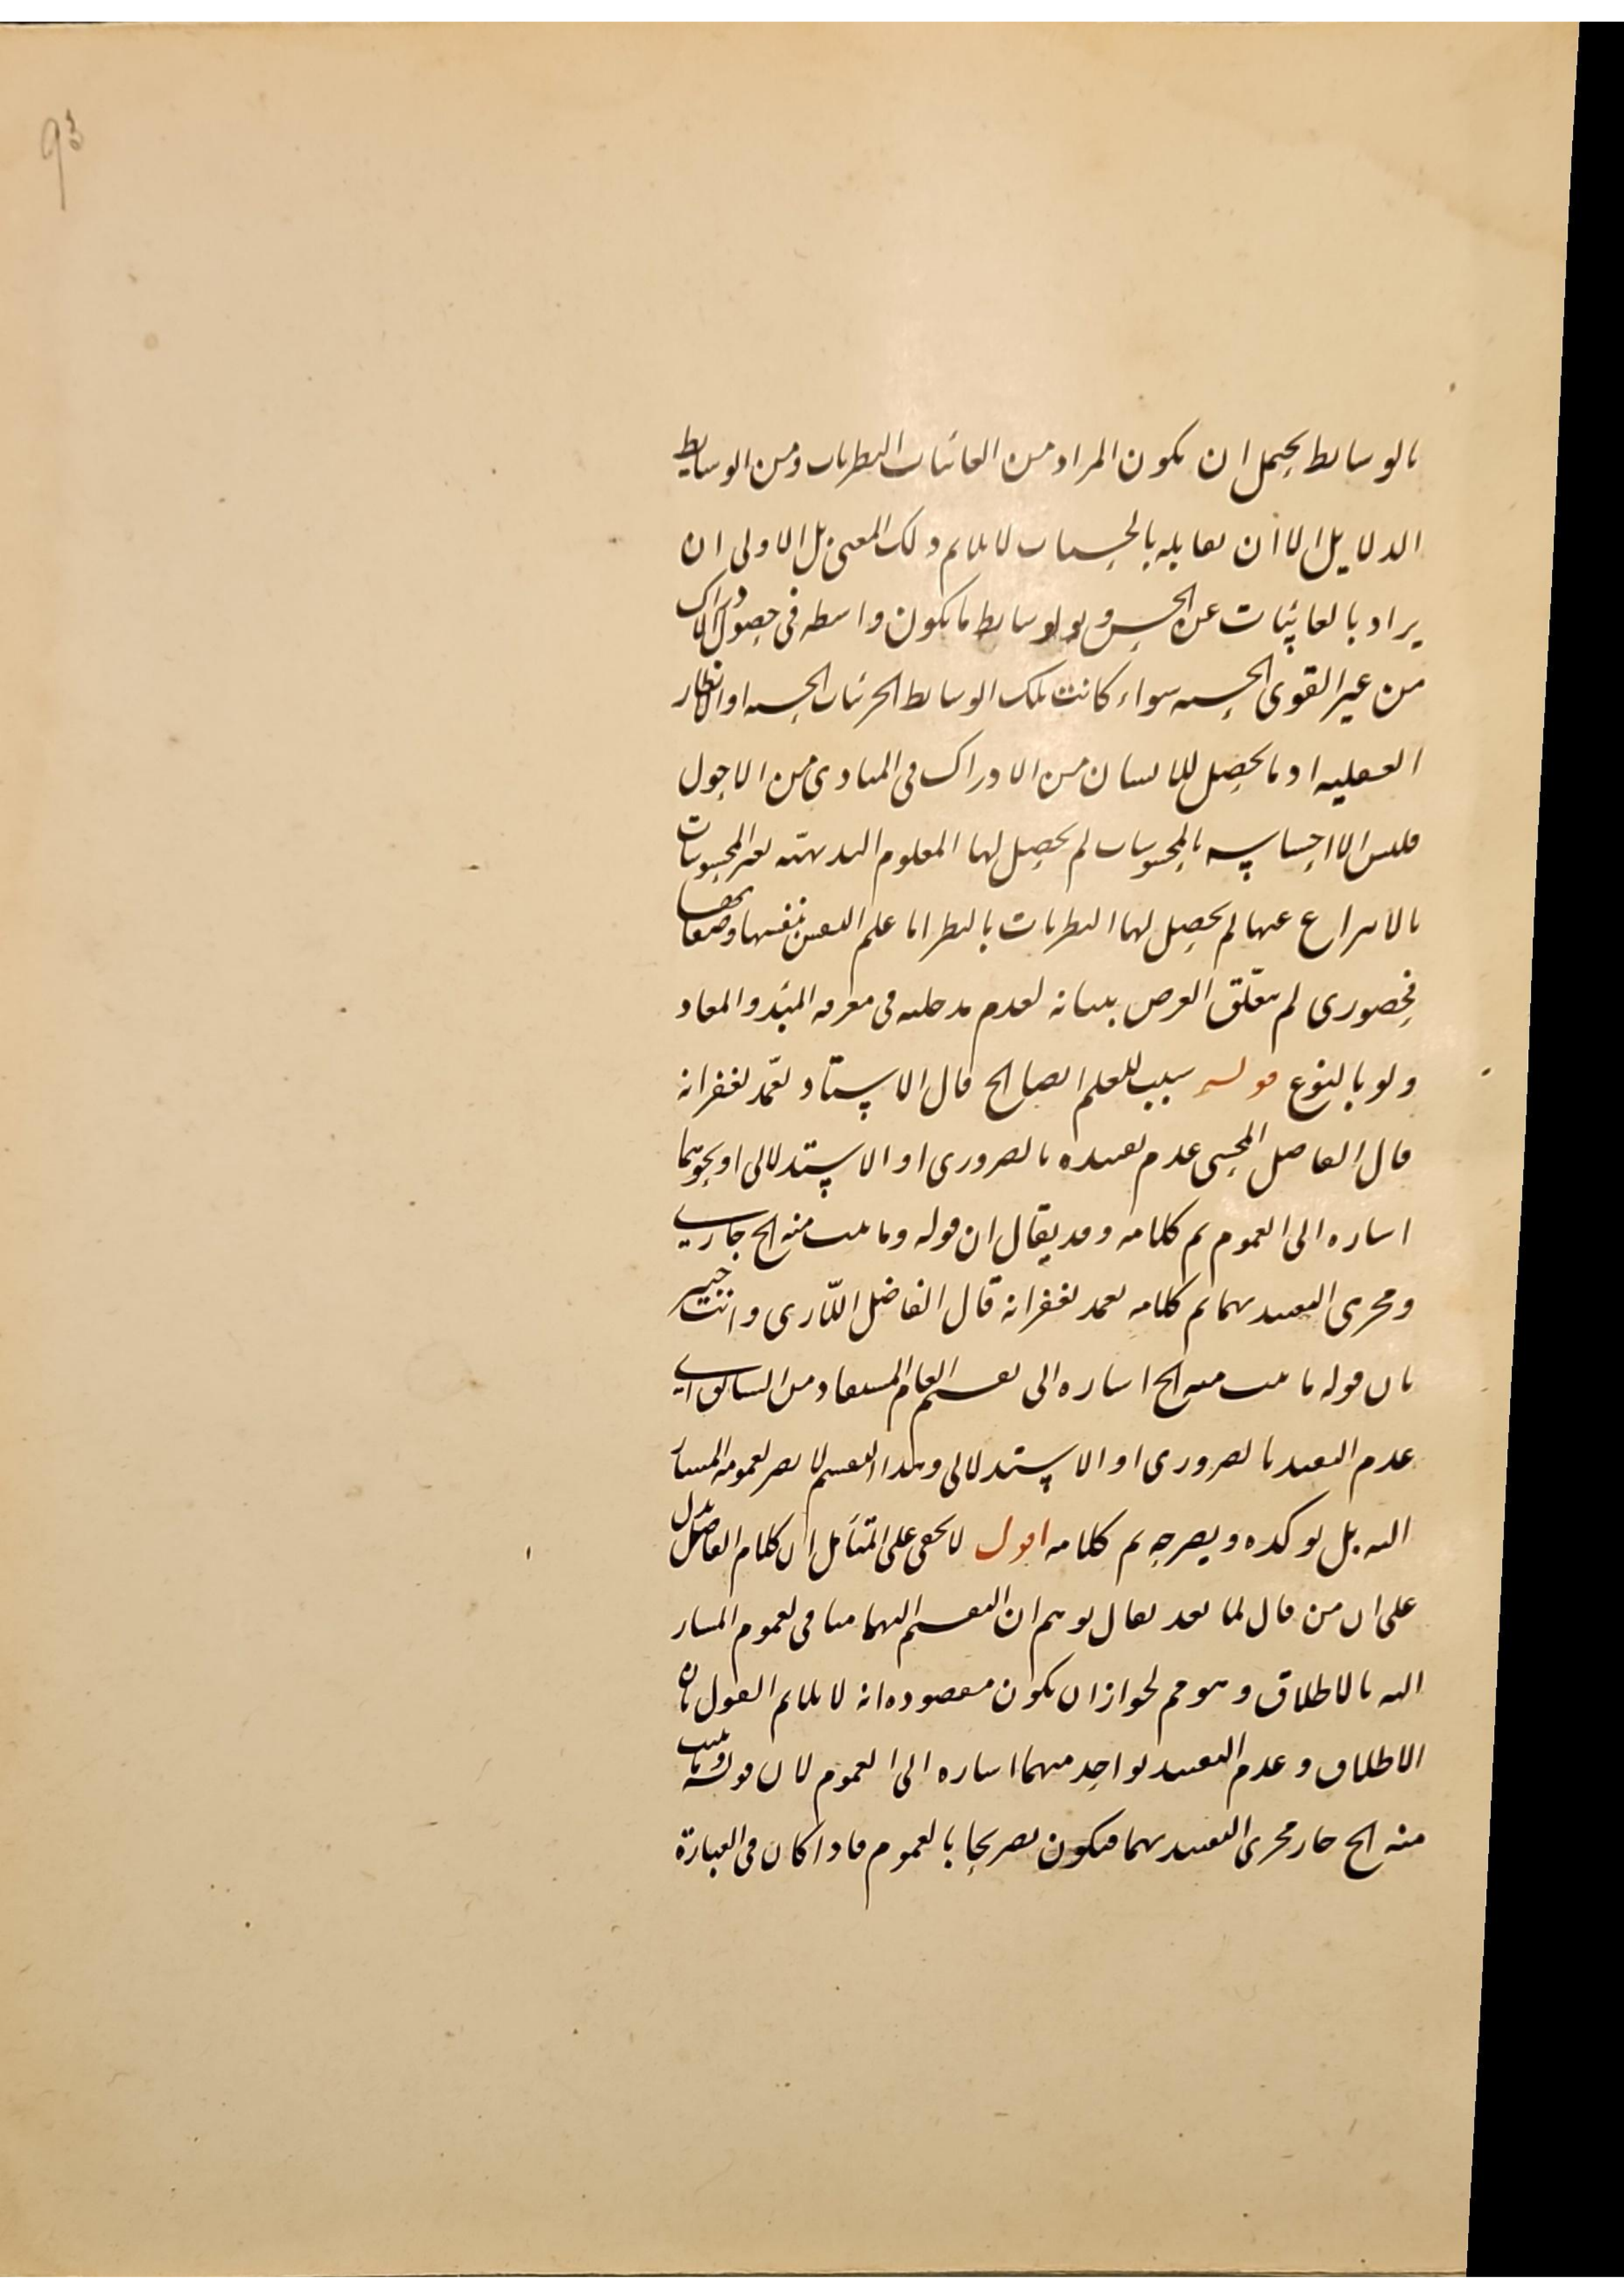 بالوسايط يحتمل ان يكون المراد من الغائبات النظريات ومن الوسايط
الدلايل الا ان تقابله بالحسيات لا يلايم ذلك المعنى بل الاولى ان
يراد بالغايبات عن الحس وبالوسايط ما يكون واسطه فى حصول الادراك
من غير القوى الحسيه سواء كانت تلك الوسايط الجزئيات الحسيه او الانظار
العقليه او ما يحصل للانسان من الادراك فى المبادى من الاحول
فليس الا احساسه بالمحسوسات لم يحصل لها المعلوم البديهيّه بعد المحسوسات
بالانتزاع عنها لم يحصل لها النظريات بالنظر اما علم النفس بنفسها وصفاتها
فحصورى لم يتعلّق الغرض ببيانه لعدم مدخليه فى معرفه المبدٔ والمعاد
ولو بالنوع قوله سبب للعلم الصالح قال الاستاد تغمّد بغفرانه
قال الفاضل المحسى عدم تقييده بالضرورى او الاستدلالى او بحوهما
اشاره الى العموم تم كلامه وقد يقال ان قوله وما ثبت منه الخ جارى
ومجرى التقييد بهما تم كلامه تغمد بغفرانه قال الفاضل اللّارى وانت خبير
بان قوله ما ثبت منه الخ اشاره الى تقسيم العام المستفاد من السابق اى
عدم التقييد بالضرورى او الاستدلالى وهذا التقسيم لا يضر لعمومه المشار
اليه بل يوكده ويصرح به تم كلامه اقول لا يخفى على المتٔامل ان كلام الفاضل يدل
على ان من قال لما بعد يقال توهم ان التقسيم اليهما منافى لعموم المشار
اليه بالاطلاق وهو مم لجواز ان يكون مقصوده انه لا يلايم القول بان
الاطلاق وعدم التقييد بواحد منهما اشاره الى العموم لان قوله وما ثبت
منه الخ جار مجرى التقييد بهما فيكون تصريحا بالعموم فاذا كان فى العبارة